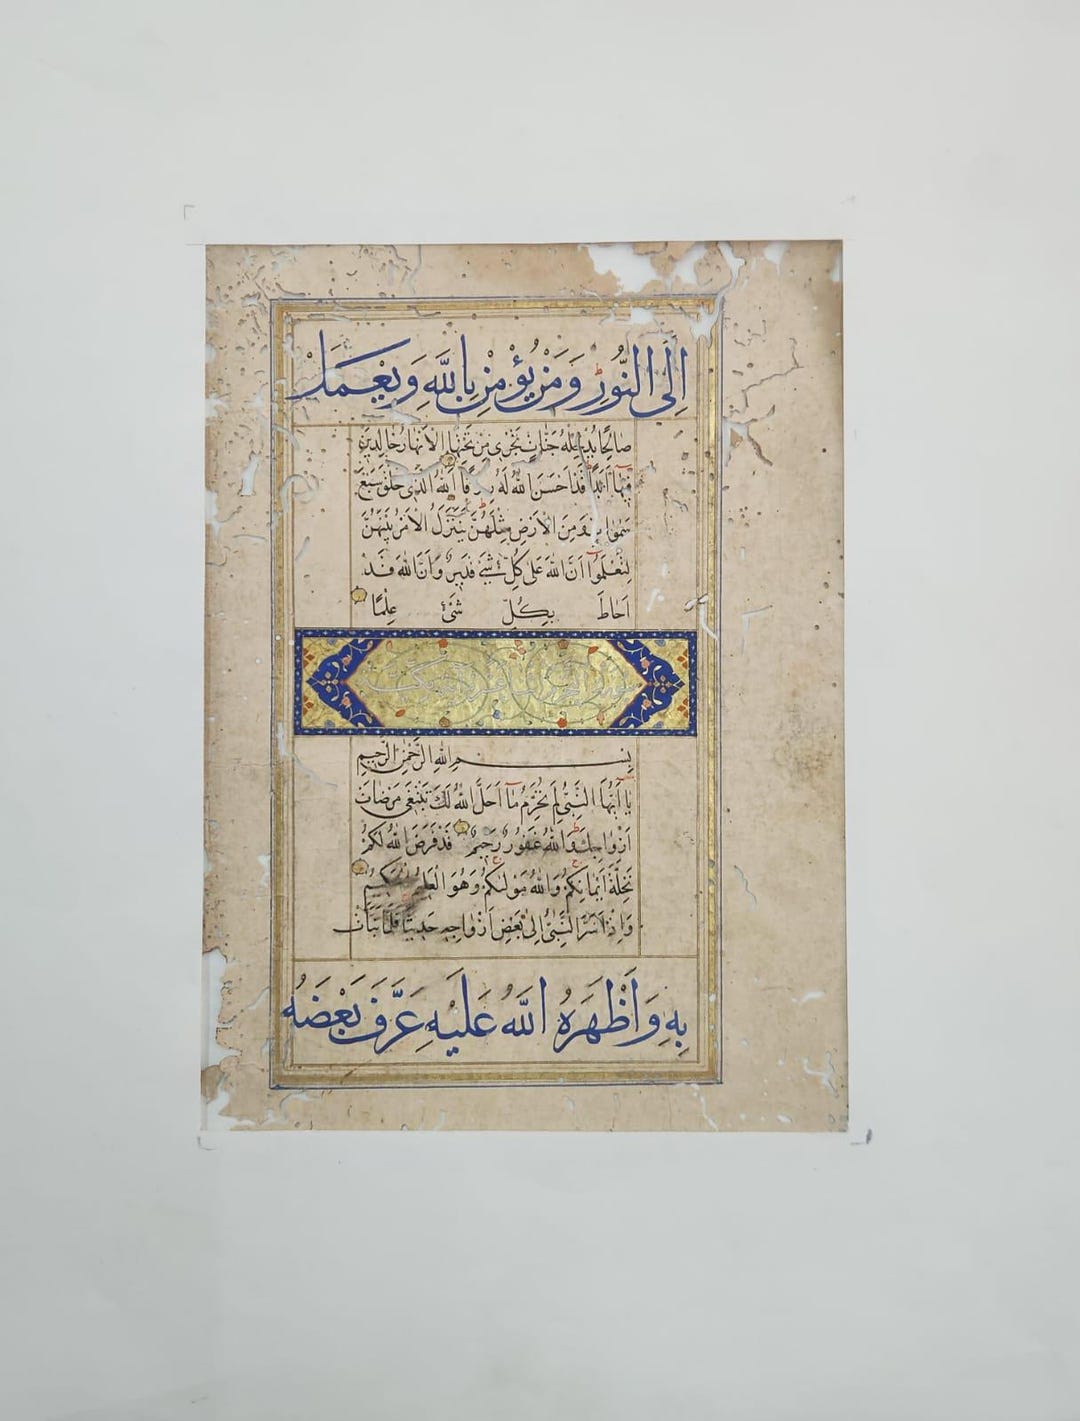 اِلَى النُّورِ وَمَنْ يُؤْمِنْ بِاللّٰهِ وَيَعْمَلْ
صَالِحًا يُدْخِلْهُ جَنَّاتٍ تَجْرِى مِنْ تَحْتِهَا الْاَنْهَارُ خَالِدِينَ
فِيهَٓا اَبَدًا قَدْ اَحْسَنَ اللّٰهُ لَهُ رِزْقًا اَللّٰهُ الَّذِى خَلَقَ سَبْعَ
سَمٰوَاتٍ وَمِنَ الْاَرْضِ مِثْلَهُنَّ يَتَنَزَّلُ الْاَمْرُ بَيْنَهُنَّ
لِتَعْلَمُٓوا اَنَّ اللّٰهَ عَلٰى كُلِّ شَىْءٍ قَدِيرٌ وَاَنَّ اللّٰهَ قَدْ
اَحَاطَ بِكُلِّ شَىْءٍ عِلْمًا
بِسْمِ اللّٰهِ الرَّحْمٰنِ الرَّحِيمِ
يَٓا اَيُّهَا النَّبِىُّ لِمَ تُحَرِّمُ مَٓا اَحَلَّ اللّٰهُ لَكَ تَبْتَغِى مَرْضَاتَ
اَزْوَاجِكَ وَاللّٰهُ غَفُورٌ رَحِيمٌ قَدْ فَرَضَ اللّٰهُ لَكُمْ
تَحِلَّةَ اَيْمَانِكُمْ وَاللّٰهُ مَوْلٰيكُمْ وَهُوَ الْعَلِيمُ الْحَكِيمُ
وَاِذْ اَسَرَّ النَّبِىُّ اِلٰى بَعْضِ اَزْوَاجِهِ حَدِيثًا فَلَمَّا نَبَّاَتْ
بِهِ وَاَظْهَرَهُ اللّٰهُ عَلَيْهِ عَرَّفَ بَعْضَهُ